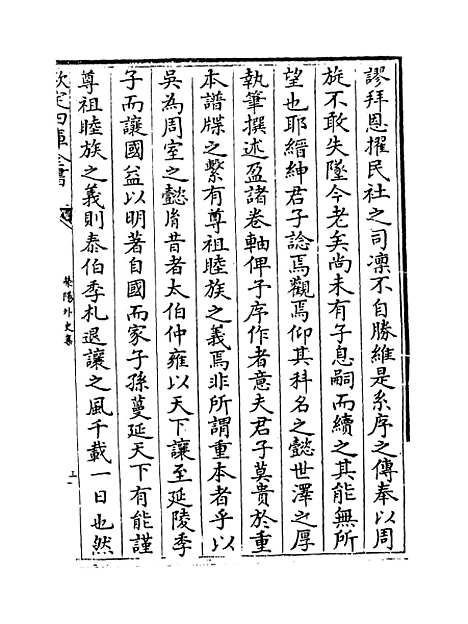 謬拜恩擢民社之司凛不自勝維是系序之傳奉以周
旋不敢失墜今老矣尚未有子息嗣而續之其能無所
望也耶縉紳君子諗焉觀焉仰其科名之懿世澤之厚
執筆撰述盈諸卷軸俾予序作者意夫君子莫貴於重
本譜牒之繫有尊祖睦族之義焉非所謂重本者乎以
吳為周室之懿胄昔者太伯仲雍以天下讓至延陵季
子而讓國益以明著自國而家子孫蔓延天下有能謹
尊祖睦族之義則泰伯季札退讓之風千載一日也然
欽定四庫全書
滎陽外史集